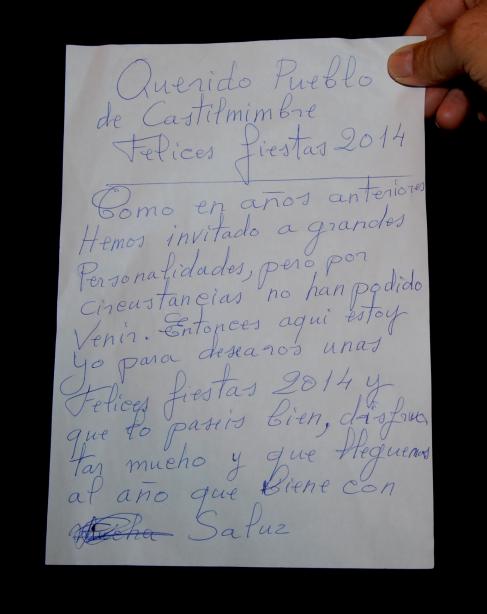 Querido Pueblo
de Castilmimbre
Felices fiestas 2014
Como en años anteriores
Hemos invitado a grandes
Personalidades, pero por
circustancias no han podido
Venir. Entonces aqui estoy
yo para desearos unas
Felices fiestas 2014 y
que lo paseis bien, disfru
tar mucho y que lleguemos
al año que biene con
Saluz